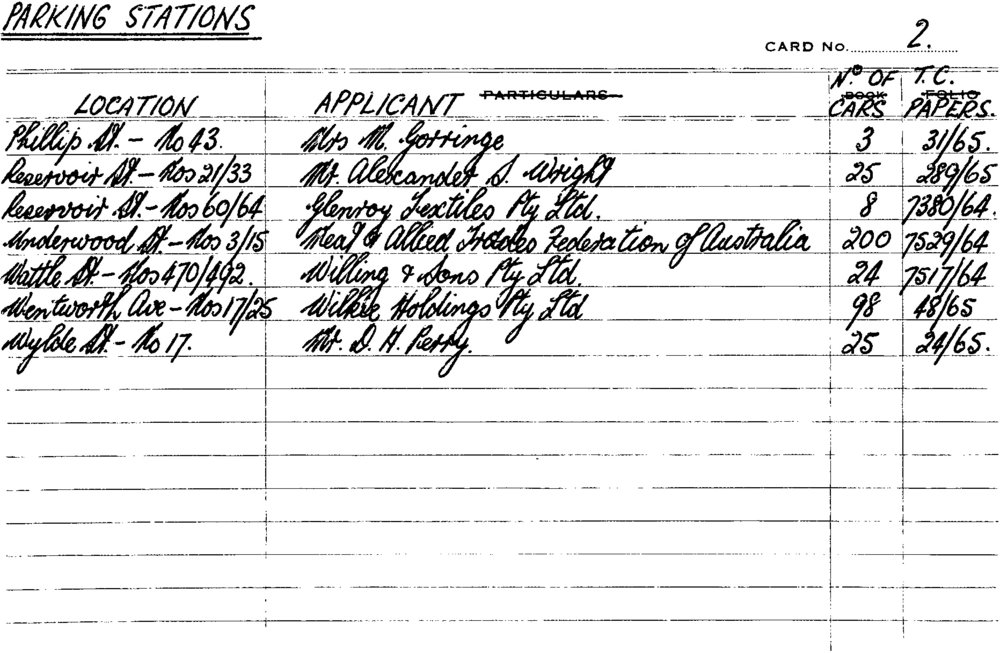 PARKING STATIONS
CARD No. 2.
LOCATION APPLICANT PARTICULARS No OF BOOK CARS T.C. FOLIO PAPERS.
Phillip St. - No 43. Mrs M. Gorringe 3 31/65.
Reservoir St. - Nos 21/33 Mr. Alexander S. Wright 25 289/65
Reservoir St. - Nos 60/64 Glenroy Textiles Pty Ltd. 8 7380/64.
Underwood St - Nos 3/15 Meat & Allied Trades Federation of Australia 200 7529/64
Wattle St - Nos 470/492. Willing & Sons Pty Ltd. 24 7517/64
Wentworth Ave - Nos 17/25 Wilkie Holdings Pty Ltd 98 48/65
Wylde St. - No 17. Mr. D. H. Perry. 25 24/65.